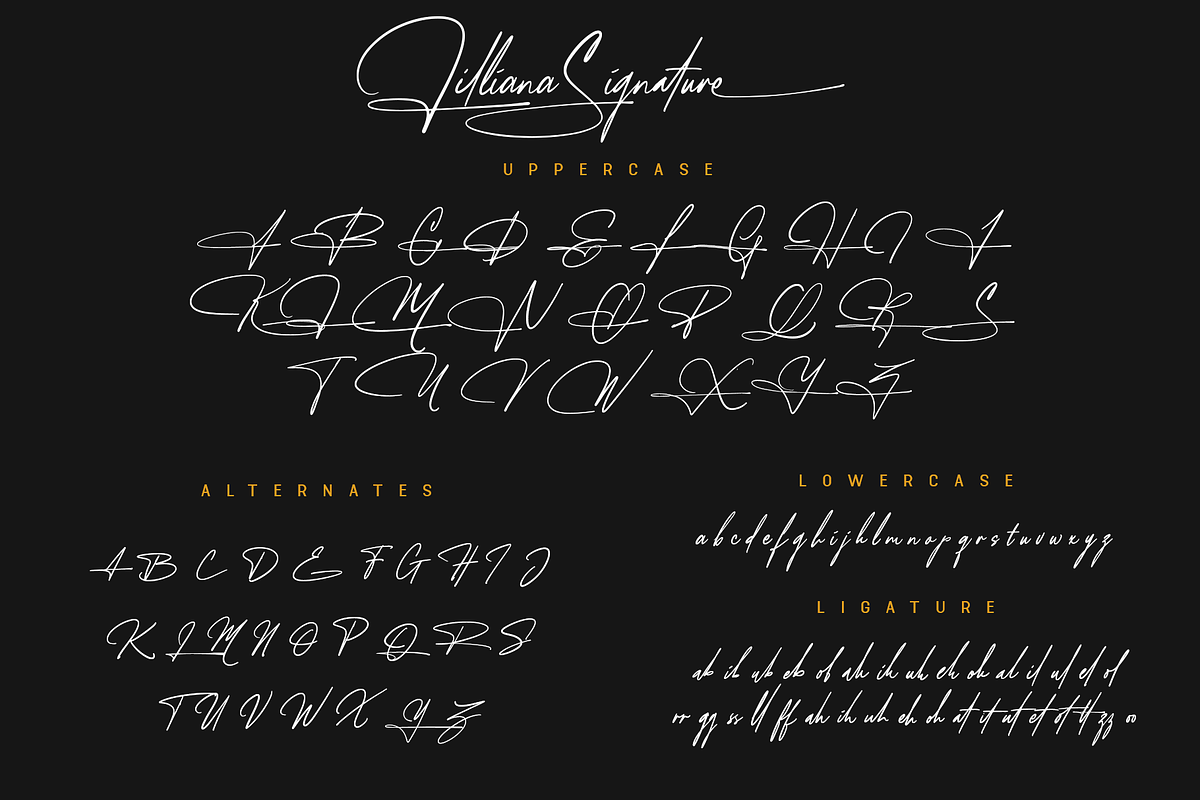 Jilliana Signature
UPPERCASE
A B C D E F G H I J
K L M N O P Q R S
T U V W X Y Z
ALTERNATES
A B C D E F G H I J
K L M N O P Q R S
T U V W X Y Z
LOWERCASE
a b c d e f g h i j k l m n o p q r s t u v w x y z
LIGATURE
ab ib ub eb ob ah ih uh eh oh al il ul el ol
rr gg ss ll ff ah ih uh eh oh at it ut et ot tt zz oo